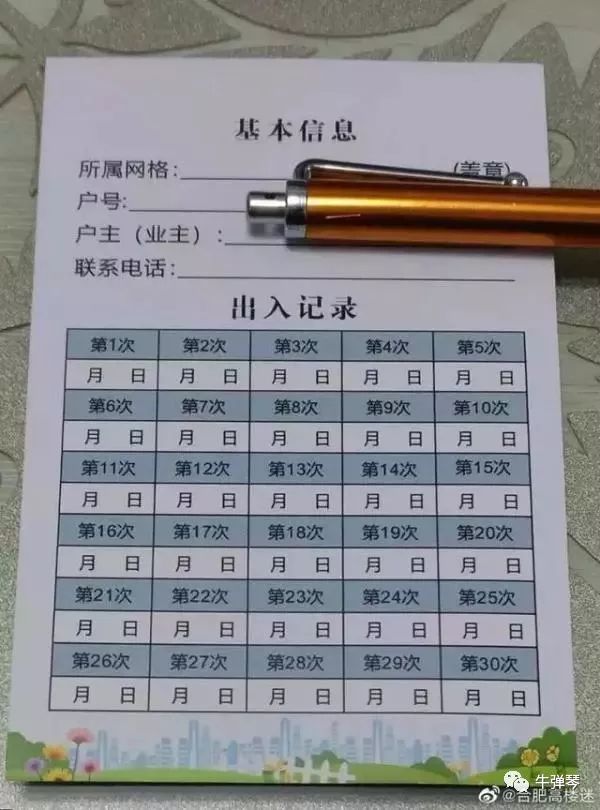 基本信息
所属网格：(盖章)
户号：
户主（业主）：
联系电话：
出入记录
第1次 第2次 第3次 第4次 第5次
月 日 月 日 月 日 月 日 月 日
第6次 第7次 第8次 第9次 第10次
月 日 月 日 月 日 月 日 月 日
第11次 第12次 第13次 第14次 第15次
月 日 月 日 月 日 月 日 月 日
第16次 第17次 第18次 第19次 第20次
月 日 月 日 月 日 月 日 月 日
第21次 第22次 第23次 第24次 第25次
月 日 月 日 月 日 月 日 月 日
第26次 第27次 第28次 第29次 第30次
月 日 月 日 月 日 月 日 月 日
牛弹琴
@合肥高楼迷